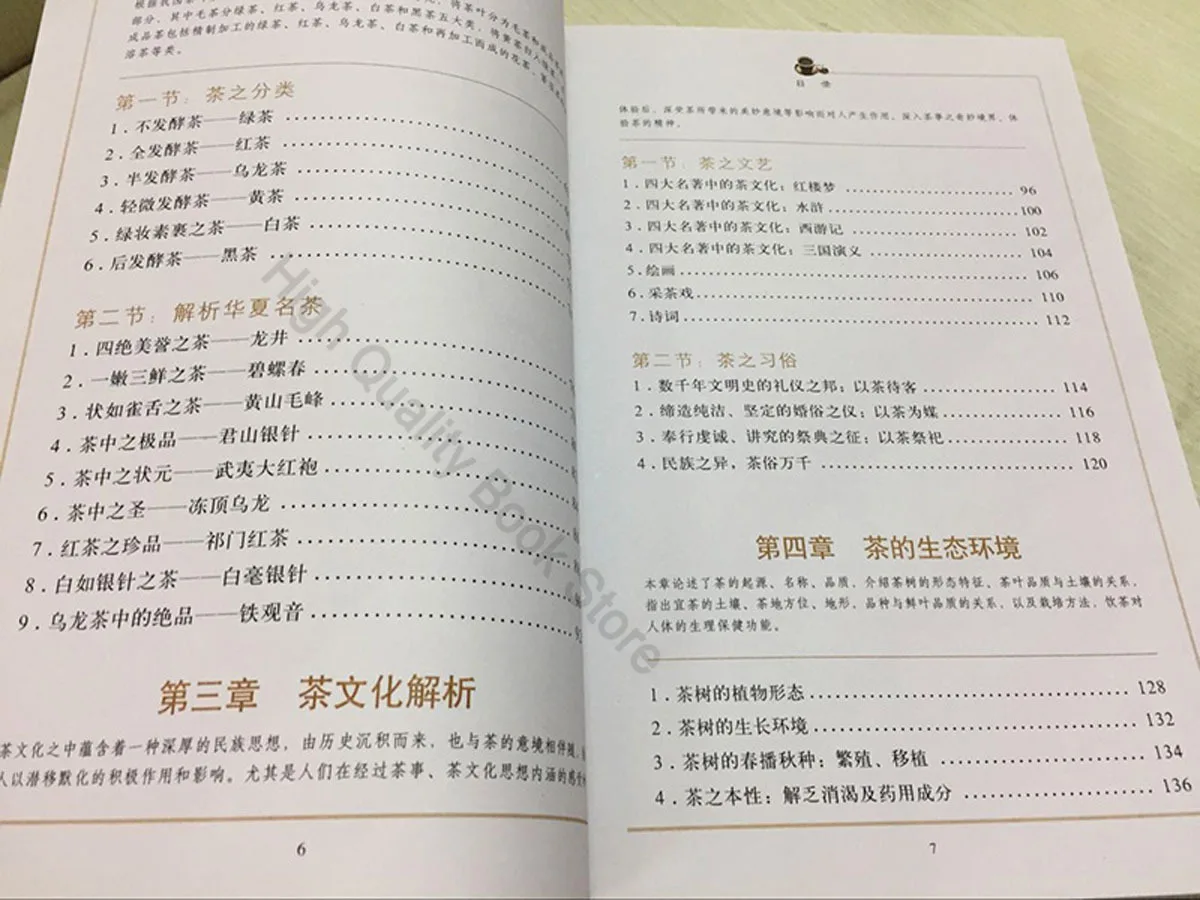 部分，其中毛茶分绿茶、红茶、乌龙茶、白茶和黑茶五大类，将黄茶归入绿茶
成品茶包括精制加工的绿茶、红茶、乌龙茶、白茶和再加工而成的花茶、
溶茶等类。
第一节：茶之分类
1．不发酵茶——绿茶
2．全发酵茶——红茶
3．半发酵茶——乌龙茶
4．轻微发酵茶——黄茶
5．绿妆素裹之茶——白茶
6．后发酵茶——黑茶
第二节：解析华夏名茶
1．四绝美誉之茶——龙井
2．一嫩三鲜之茶——碧螺春
3．状如雀舌之茶——黄山毛峰
4．茶中之极品——君山银针
5．茶中之状元——武夷大红袍
6．茶中之圣——冻顶乌龙
7．红茶之珍品——祁门红茶
8．白如银针之茶——白毫银针
9．乌龙茶中的绝品——铁观音
第三章 茶文化解析
茶文化之中蕴含着一种深厚的民族思想，由历史沉积而来，也与茶的意境相伴随，
人以潜移默化的积极作用和影响。尤其是人们在经过茶事、茶文化思想内涵的感
6
目 录
体验后，深受茶所带来的美妙意境等影响而对人产生作用。深入茶事之奇妙境界，体
验茶的精神。
第一节：茶之文艺
1．四大名著中的茶文化：红楼梦 96
2．四大名著中的茶文化：水浒 100
3．四大名著中的茶文化：西游记 102
4．四大名著中的茶文化：三国演义 104
5．绘画 106
6．采茶戏 110
7．诗词 112
第二节：茶之习俗
1．数千年文明史的礼仪之邦：以茶待客 114
2．缔造纯洁、坚定的婚俗之仪：以茶为媒 116
3．奉行虔诚、讲究的祭典之征：以茶祭祀 118
4．民族之异，茶俗万千 120
第四章 茶的生态环境
本章论述了茶的起源、名称、品质，介绍茶树的形态特征、茶叶品质与土壤的关系，
指出宜茶的土壤、茶地方位、地形，品种与鲜叶品质的关系，以及栽培方法，饮茶对
人体的生理保健功能。
1．茶树的植物形态 128
2．茶树的生长环境 132
3．茶树的春播秋种：繁殖、移植 134
4．茶之本性：解乏消渴及药用成分 136
7
High Quality Book Store